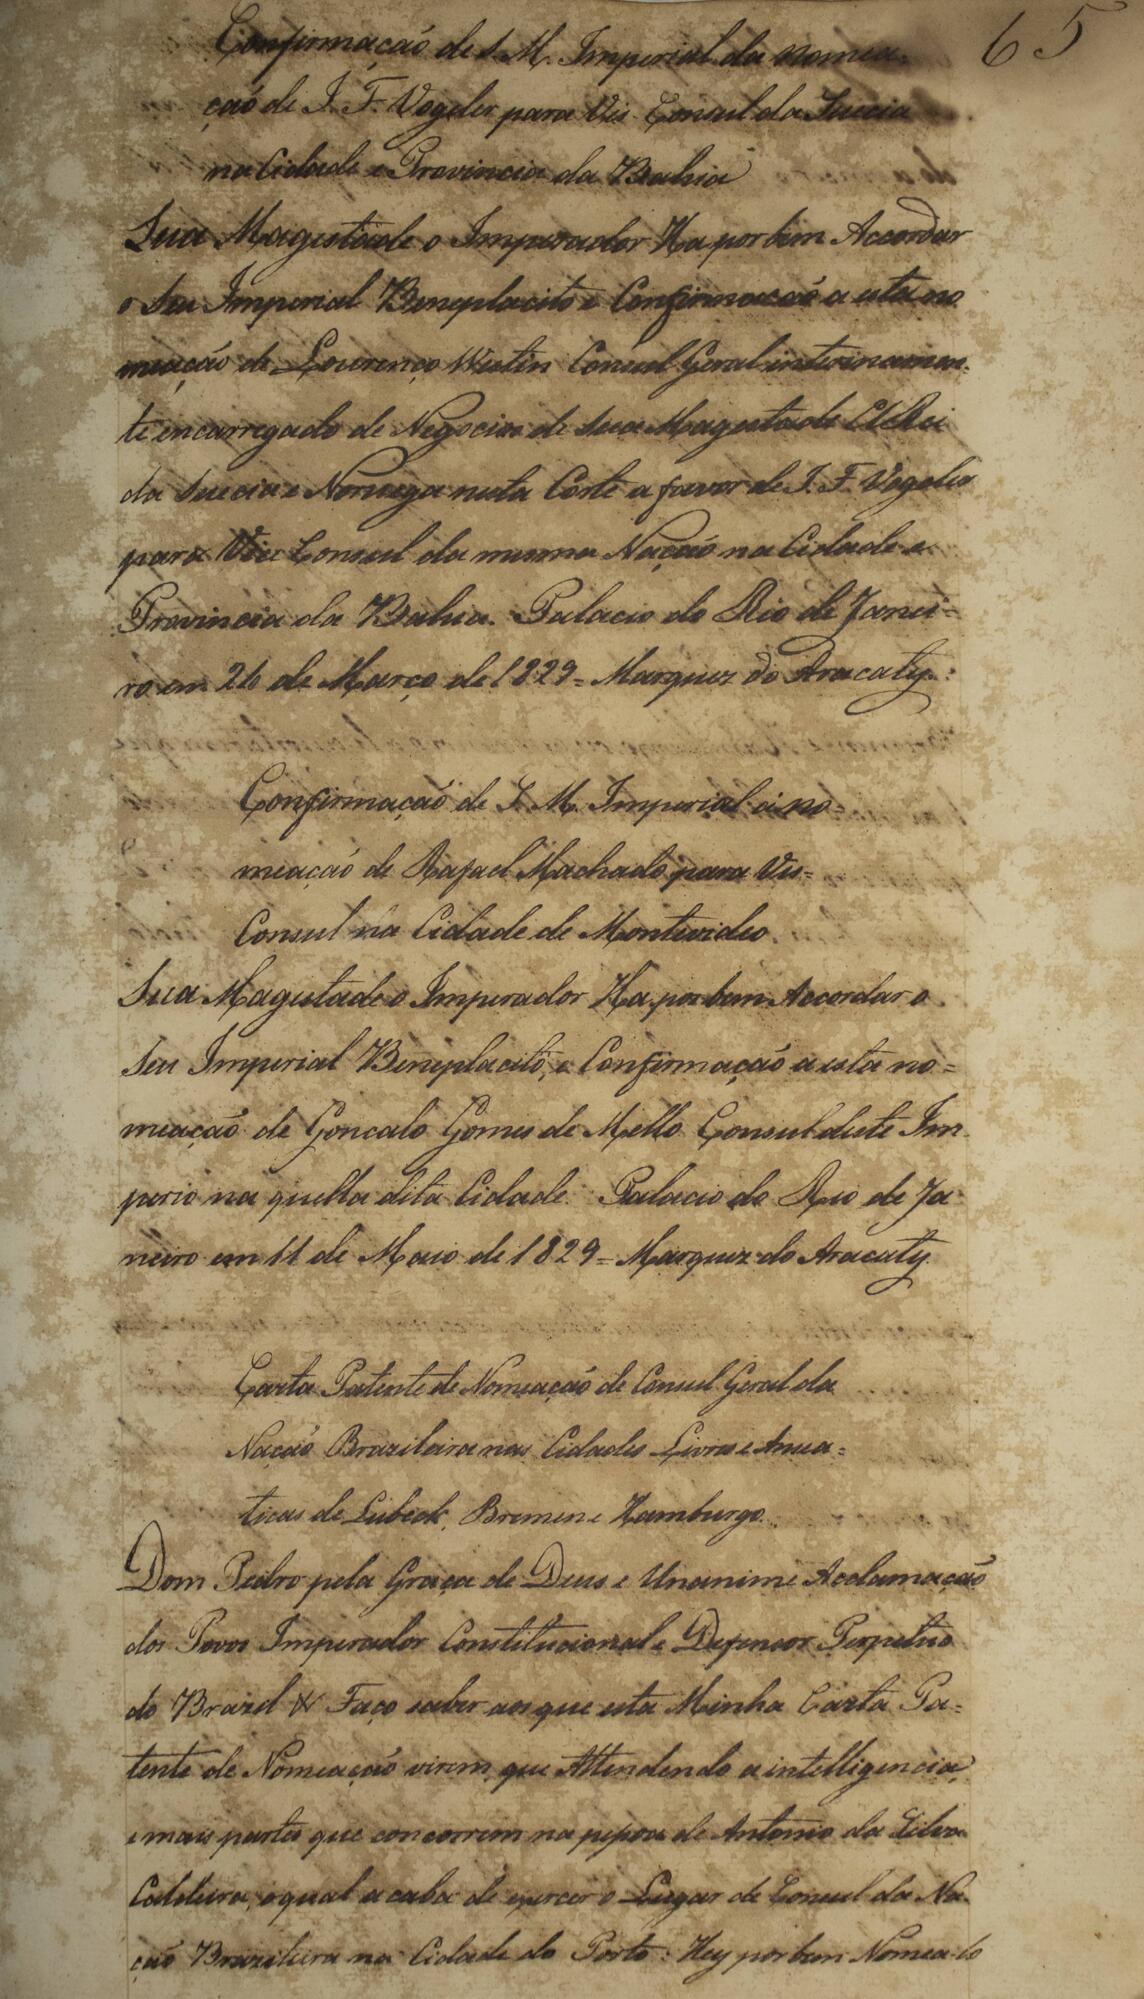 65
Confirmação de S. M. Imperial da nomea-
ção de J. F. Vogeler para Vis-Consul da Suecia
na Cidade e Provincia da Bahia
Sua Magestade o Imperador Ha por bem Accordar
o Seu Imperial Beneplacito e Confirmação a esta no
meação de Lourenço Westin Consul Geral interinamen-
te encarregado de Negocios de Sua Magestade ElRei
da Suecia e Noruega nesta Corte a favor de J. F. Vogeler
para Vice Consul da mesma Nação na Cidade e
Provincia da Bahia. Palacio do Rio de Janei-
ro em 26 de Março de 1829 = Marquez do Aracaty.
Confirmação de S. M. Imperial á no-
meação de Rafael Machado para Vis-
Consul na Cidade de Montevideo.
Sua Magestade o Imperador Ha por bem Accordar o
Seu Imperial Beneplacito, e Confirmação a esta no=
meação de Goncalo Gomes de Mello Consul deste Im-
perio na quella dita Cidade. Palacio do Rio de Ja
neiro em 11 de Maio de 1829 = Marquez do Aracaty
Carta Patente de Nomeação de Consul Geral da
Nação Brazileira nas Cidades Livres e Ansea=
ticas de Lubeck, Bremen e Hamburgo.
Dom Pedro pela Graça de Deus e Unanime Acclamação
dos Povos Imperador Constitucional e Defensor Perpetuo
do Brazil & Faço saber aos que esta Minha Carta Pa=
tente de Nomeação virem, que Attendendo a intelligencia,
e mais partes que concorrem na pessoa de Antonio da Silva
Caldeira, o qual acaba de exercer o Lugar de Consul da Na-
ção Brazileira na Cidade do Porto: Hey por bem Nomea-lo